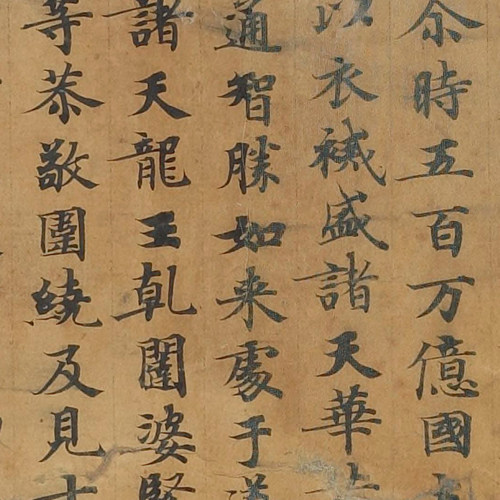 尒時五百万億國
以衣祴盛諸天華
通智勝如来處于道
諸天龍王乹闥婆緊
等恭敬圍繞及見十